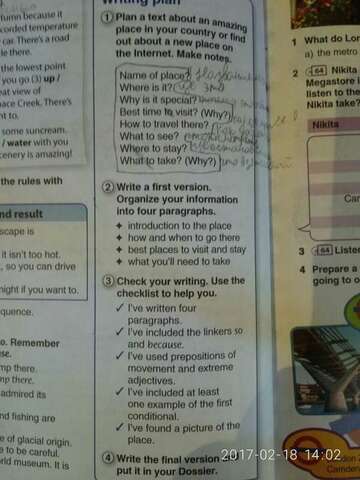 tumn because it
corded temperature
car. There's a road
le there.
the lowest point
you go (3) up /
eat view of
pace Creek. There's
nt to.
some suncream.
/ water with you
cenery is amazing!
the rules with
nd result
scape is
it isn't too hot.
, so you can drive
night if you want to.
quence.
o. Remember
use.
mp there.
mp there.
admired its
nd fishing are
e of glacial origin.
e to be careful.
orld museum. It is
Writing plan
1 Plan a text about an amazing
place in your country or find
out about a new place on
the Internet. Make notes.
Name of place?
Where is it?
Why is it special?
Best time to visit? (Why?)
How to travel there?
What to see?
Where to stay?
What to take? (Why?)
2 Write a first version.
Organize your information
into four paragraphs.
+ introduction to the place
+ how and when to go there
+ best places to visit and stay
+ what you'll need to take
3 Check your writing. Use the
checklist to help you.
✓ I've written four
paragraphs.
✓ I've included the linkers so
and because.
✓ I've used prepositions of
movement and extreme
adjectives.
✓ I've included at least
one example of the first
conditional.
✓ I've found a picture of the
place.
4 Write the final version and
put it in your Dossier.
1 What do Lon
a) the metro
2 64 Nikita
Megastore i
listen to the
Nikita take?
Nikita
Car
3 64 Listen
4 Prepare a
going to o
Camden
2017-02-18 14:02